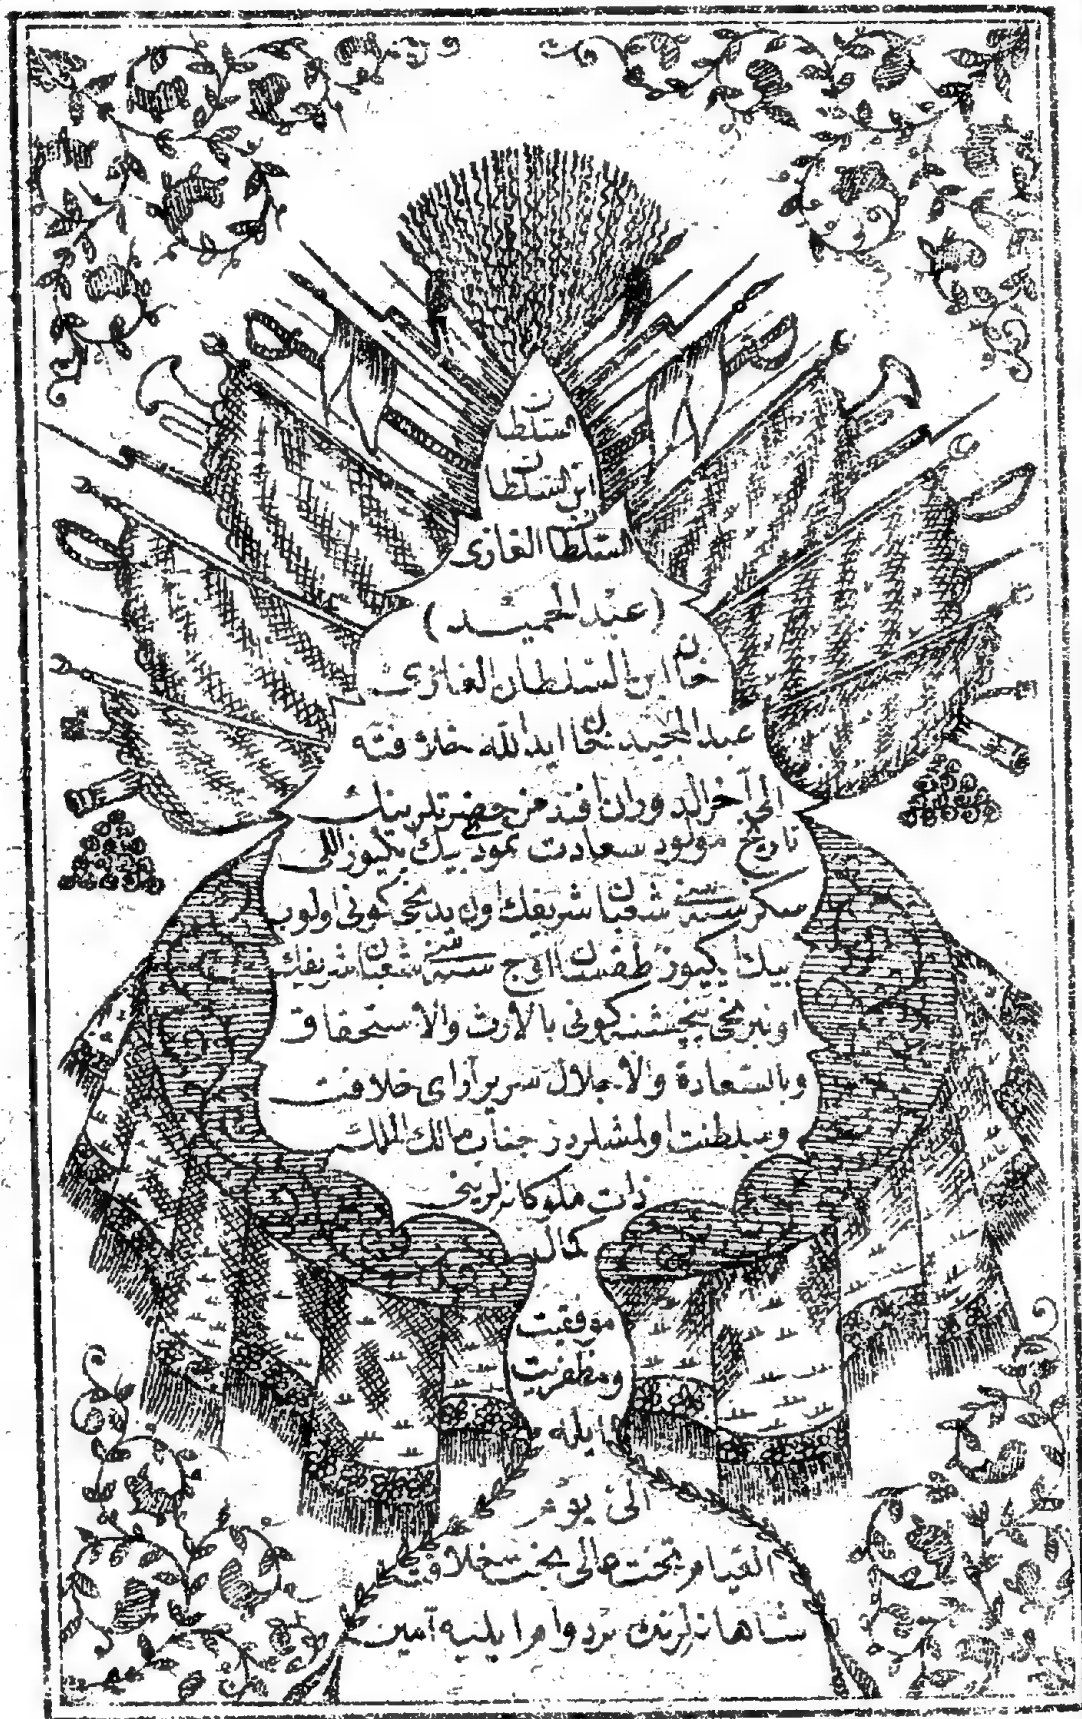 السلطان
ابن السلطان
السلطان الغازى
(عبد الحميد)
خان ابن السلطان الغازى
عبد المجيد خان ايد الله خلافته
الى آخر الدوران افندمز حضرتلرينك
تاريخ مولود سعادت نمودى بيك ايكيوز اللى
سكز سنه سى شعبان شريفك اون يدنجى كونى اولوب
بيك ايكيوز طقسان اوچ سنه سى شعبان شريفك
اونبرنجى پنجشنبه كونى بالارث والاستحقاق
وبالسعادة والاجلال سرير آراى خلافت
وسلطنت اولمشلردر جناب مالك الملك
ذات ملوكانه لرينى
كمال
موفقيت
ومظفريت
ايله
الى يوم
القيام تخت عالى بخت خلافت
شاهانه لرنده بردوام ايليه آمين